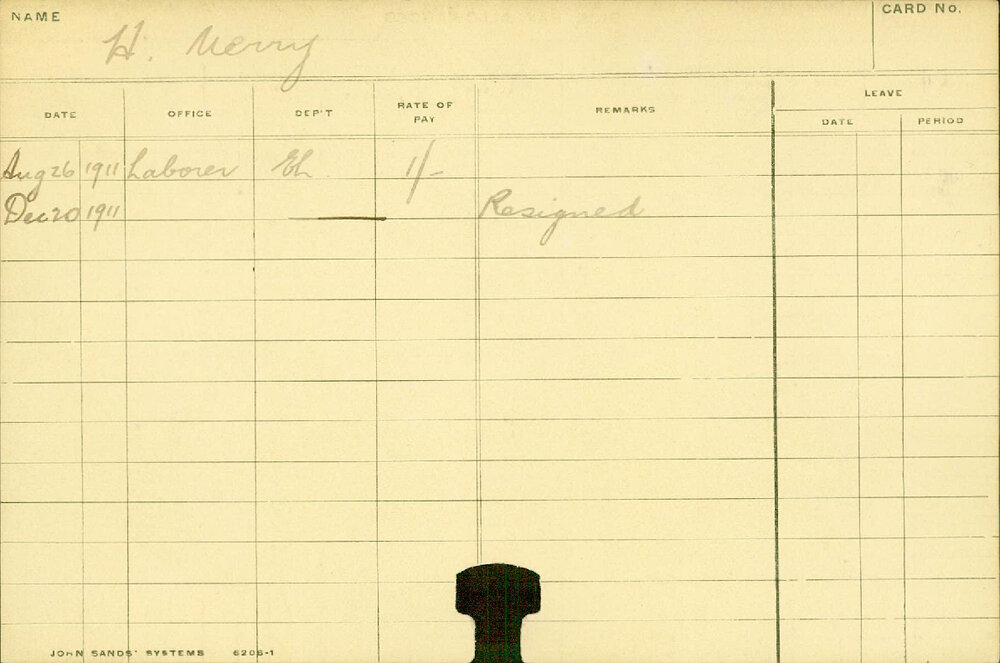 NAME
CARD No.
H. Merry
DATE OFFICE DEP'T RATE OF PAY REMARKS LEAVE
DATE PERIOD
Aug 26 1911 Laborer 1/-
Dec 20 1911 Resigned
JOHN SANDS' SYSTEMS 6206-1